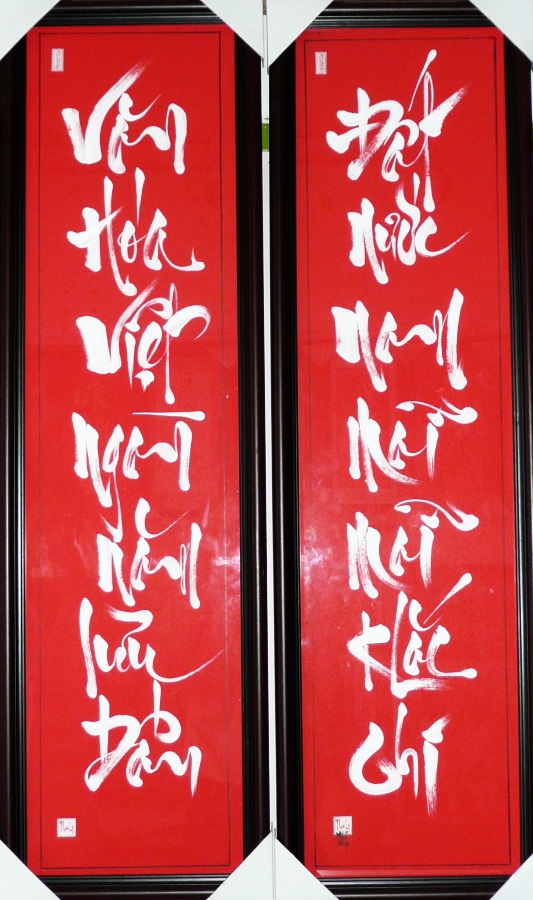 Văn
Hóa
Việt
Ngàn
Năm
Lưu
Đậm
Đất
Nước
Nam
Mãi
Mãi
Khắc
Ghi